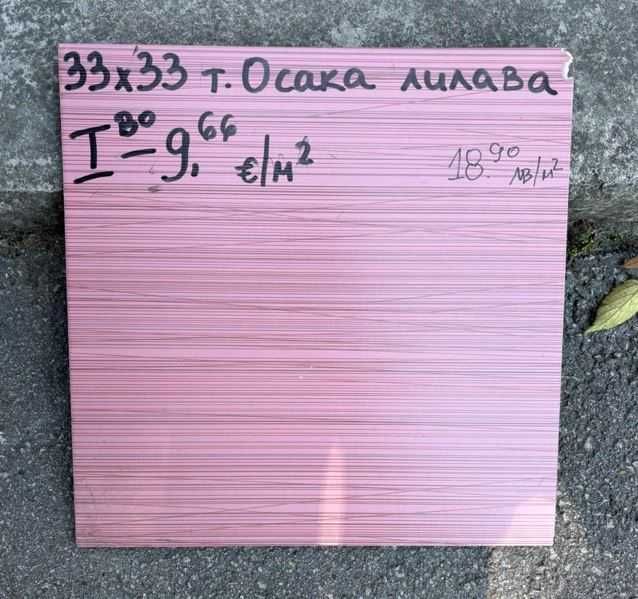 33x33 т. Осака лилава
I во - 9.66 €/м² 18.90 лв/м²